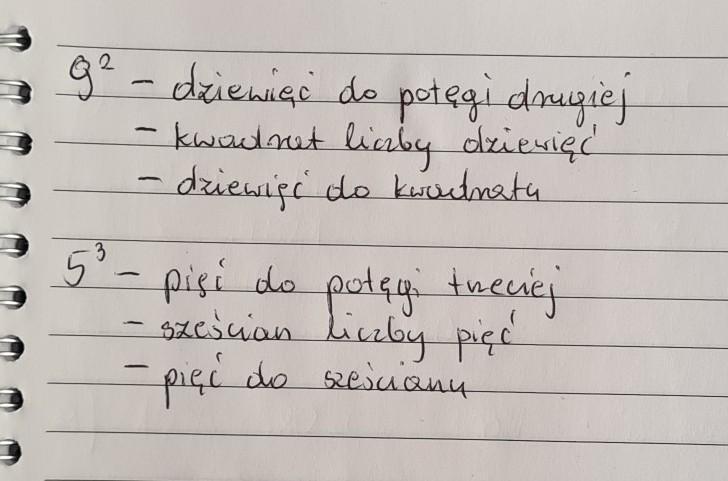 9² – dziewięć do potęgi drugiej
– kwadrat liczby dziewięć
– dziewięć do kwadratu
5³ – pięć do potęgi trzeciej
– sześcian liczby pięć
– pięć do sześcianu